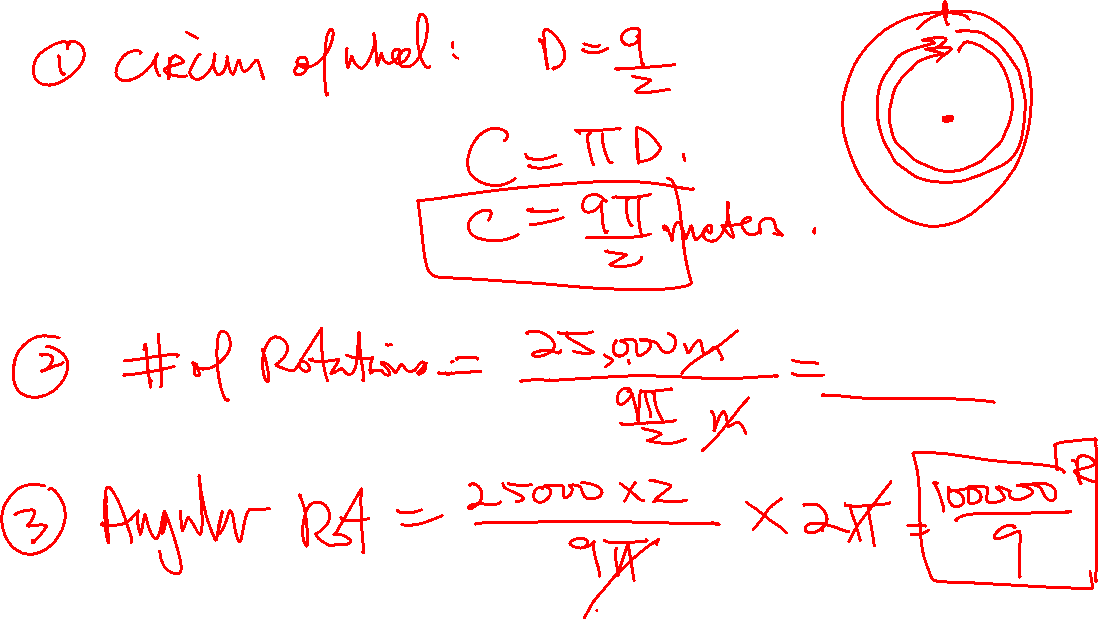 ① CIRCUM of wheel: D = 9/2
C = πD.
C = 9π/2 meters.
② # of Rotations = 25,000 m / (9π/2 m) = ____
③ Angular Rot = 25000 x 2 / 9π x 2π = 100000/9 R